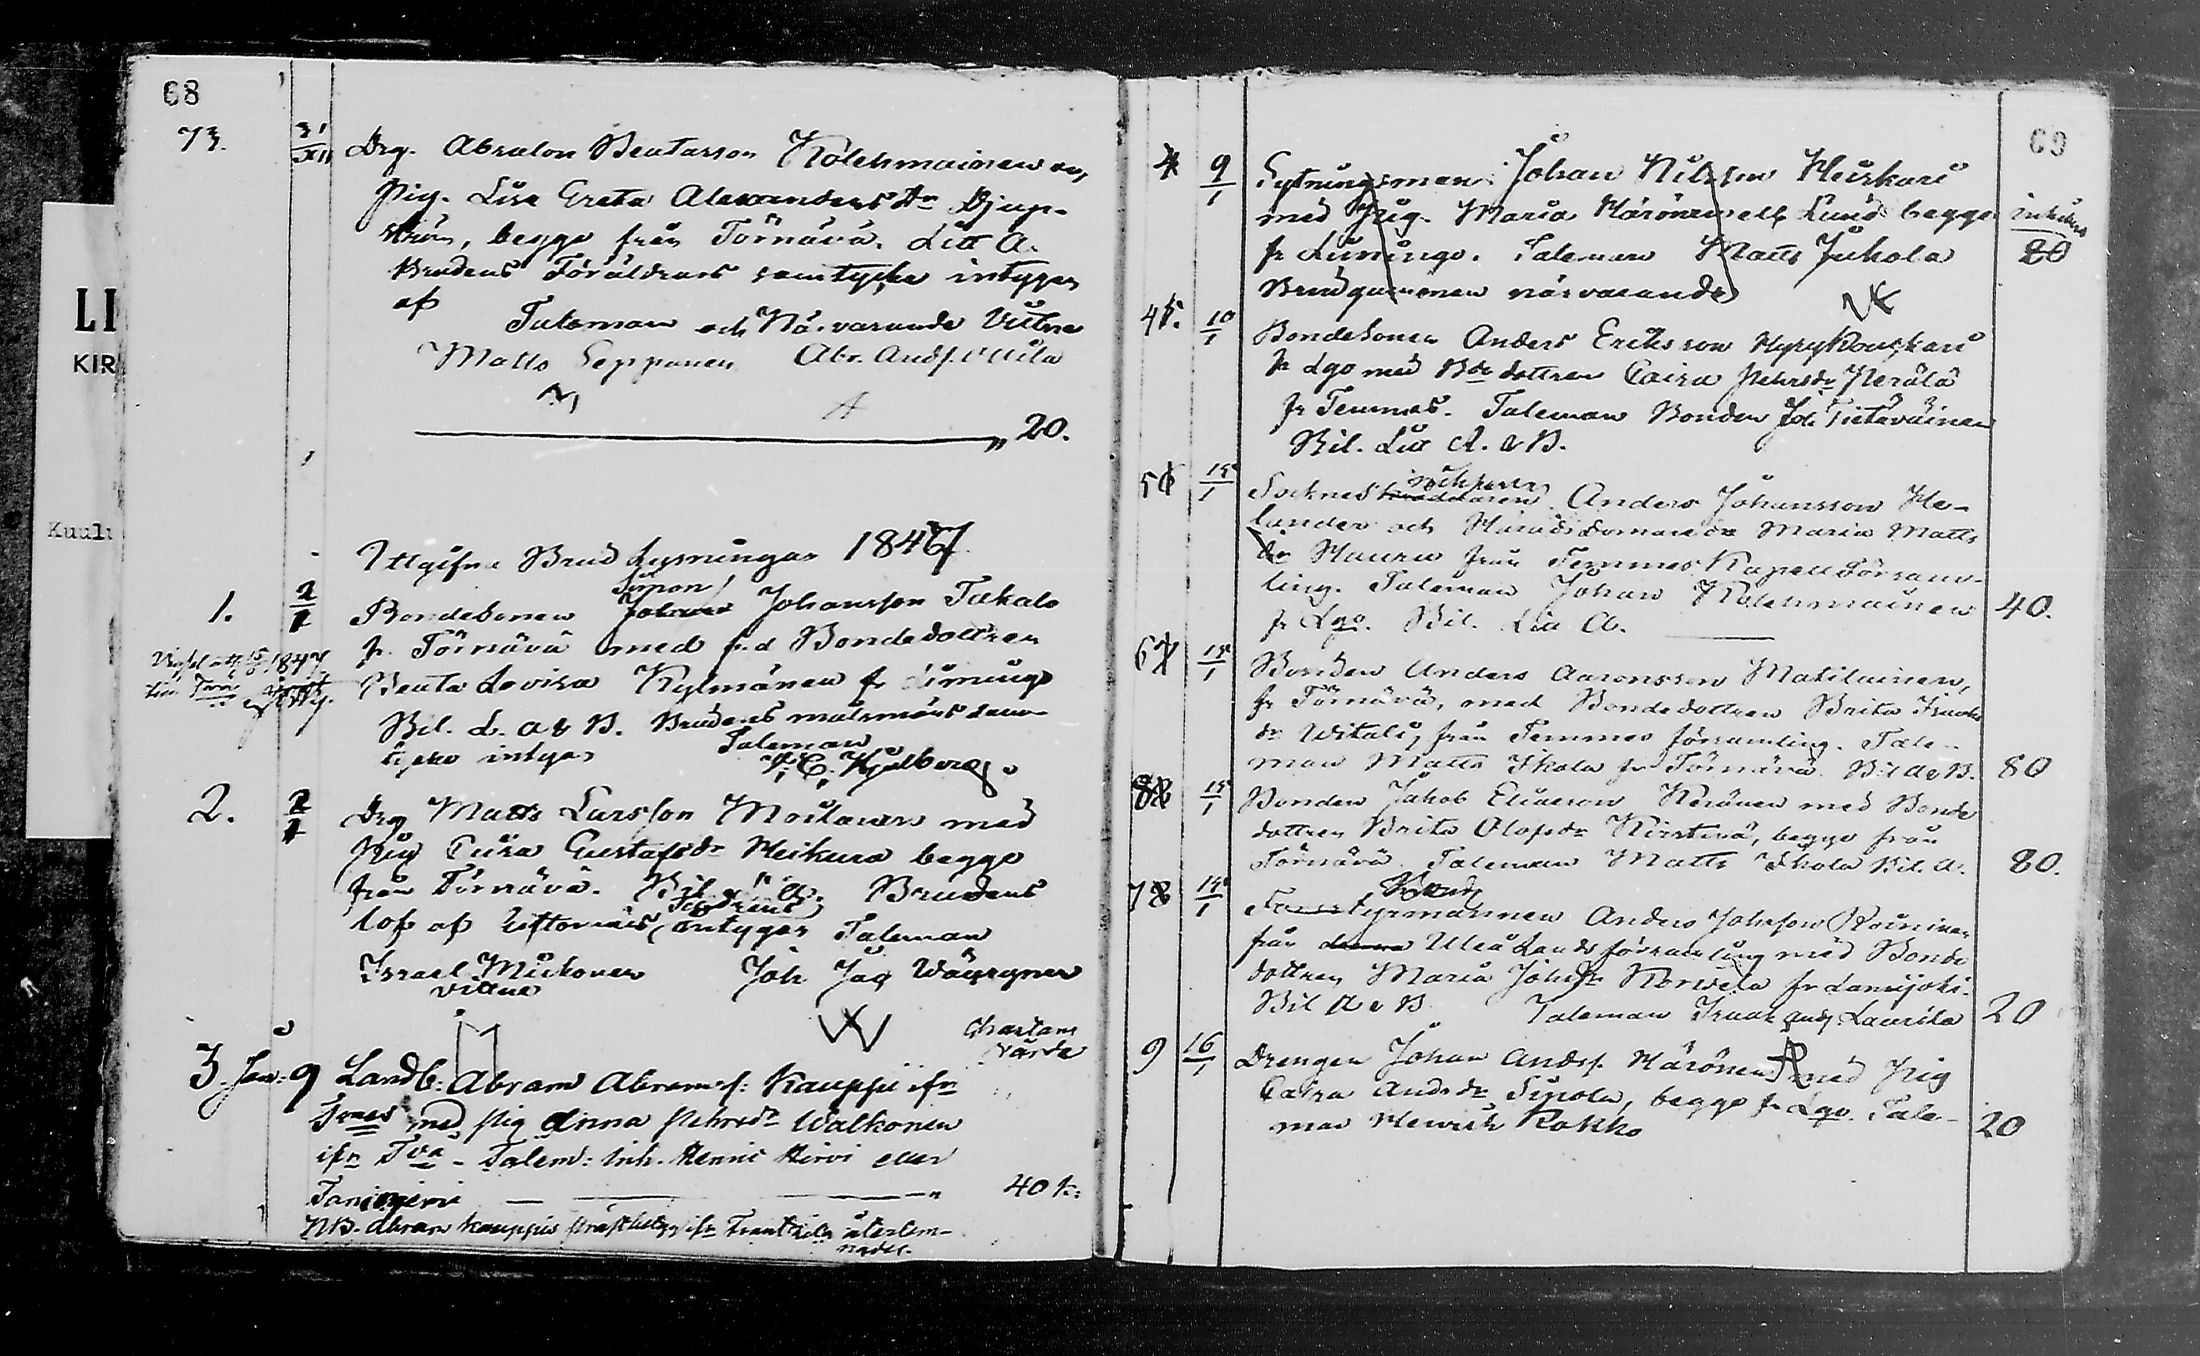 68
73. 31/XII Drg. Absalon Beatasson Kolehmainen o,
Pig. Lisa Greta Alexandersdr Djup-
ström, begge från Törnävä. Litt A.
Brudens Föräldrars samtycke intyges
af
Taleman och Närvarande Vittne
Matts Seppänen Abr. Andss. Uttila
„ 20.
LI
KIR
Kuulu
Utgifne Brud Lysningar 1847
Simon
1. 2/1 Bondesonen Johansson Takalo
fr Törnävä med f.d Bondedottren
Vigsel att 1847
Beata Lovisa Kylmänen fr Liminge
Bil. L. A & B. Brudens målsmans sam-
tycke intygas Taleman
C. Hjelberg.
2. 2/1 Drg Matts Larsson Moilanen med
Pig Caisa Gustafsdr Heikura begge
från Törnävä. Bil Brudens
lof af intyger Taleman
Israel Mickonen Joh Jac Wäyrynen
vittne
Chartans
värde
3. Jan: 9 Landb: Abram Abramss: Kauppi ifn
med pig Anna Pehrsdr Walkonen
ifn Tvä - Talem: Inh. Henric Hirvi eller
Taninjemi — „ 40 k:
NB. Abram Kauppis prestbetyg ifr Frantsila återlem-
nades.
69
4 9/1 Sytningsman Johan Nilsson Heiskari
med Pig. Maria Härönen ell Lund begge
fr Liminge. Taleman Matts Jukola 20
Brudgummen närvarande
4 10/1 Bondesonen Anders Ericsson Hyry Kouskari
fr Lgo med Bde dottren Caisa Pehrsdr Perälä
fr Temmes. Taleman Bonden Joh. Tietäväinen
Bil. Litt A. & B.
5 15/1 Sockne Anders Johansson He-
lander och Häradsdomaredr Maria Matts
dr Hannu från Temmes Kapell Församl-
ling. Taleman Johan Kolehmainen 40.
fr Lgo. Bil. Litt A.
6 15/1 Bonden Anders Aaronsson Matilainen,
fr Törnävä, med Bondedottren Brita Isacks
dr Witali, från Temmes församling. Tale-
man Matts Skola fr Törnävä. Bil A & B. 80
8 15/1 Bonden Jakob Eliasson Keränen med Bonde
dottren Brita Olofsdr Kirstinä, begge från
Törnävä. Taleman Matts Skola Bil. A. 80.
7 15/1 styrmannen Anders Johsson Roininen
från Uleå Lands församling med Bonde
dottren Maria Johsdr Korwela fr Lumijoki.
Bil A & B Taleman Isaac Ands. Laurila 20
9 16/1 Drengen Johan Andss. Härönen med Pig
Caisa Andsdr Sipola, begge fr Lgo. Tale-
man Henrik Rokko 20